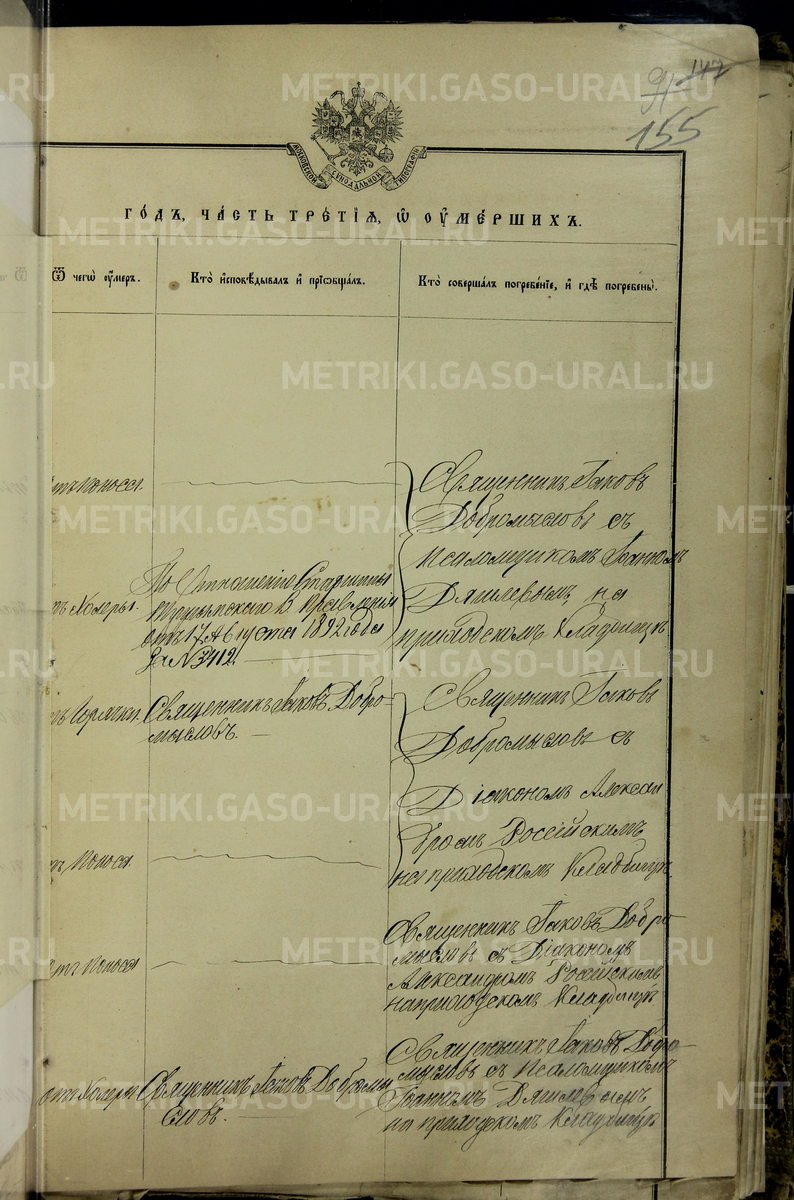 147
91
155
МОСКОВСКОЙ СѴНОДАЛЬНОЙ ТИПОГРАФІИ
ГО́ДЪ, ЧА́СТЬ ТРЕ́ТІѦ, Ѽ ОУМЕ́РШИХЪ.
Ѿ чегѡ̀ оу́меръ.
Кто̀ и҆сповѣ́дывалъ и҆ прїѡбща́лъ.
Кто̀ соверша́лъ погребе́нїе, и҆ гдѣ̀ погребены̀.
отъ Поноса.
Священникъ Іаковъ
Добромысловъ съ
псаломщикомъ Іоанномъ
на
приходскомъ Кладбищѣ
тъ Холеры.
По Отношенію Старшины
В. Правленія
отъ 17 Августа 1892 года
За № 3412.
тъ Горячки.
Священникъ Іаковъ Добро-
мысловъ.
Священникъ Іаковъ
Добромысловъ съ
Діакономъ Алексан
дромъ Россійскимъ
на приходскомъ Кладбищѣ.
тъ Поноса.
отъ Поноса
Священникъ Іаковъ Добро
мысловъ съ Діакономъ
Александромъ Россійскимъ
на приходскомъ Кладбищѣ
отъ Холеры
Священникъ Іаковъ Добромы
словъ.
Священникъ Іаковъ Добро
мысловъ съ Псаломщикомъ
Іоанномъ
на приходскомъ Кладбищѣ
METRIKI.GASO-URAL.RU